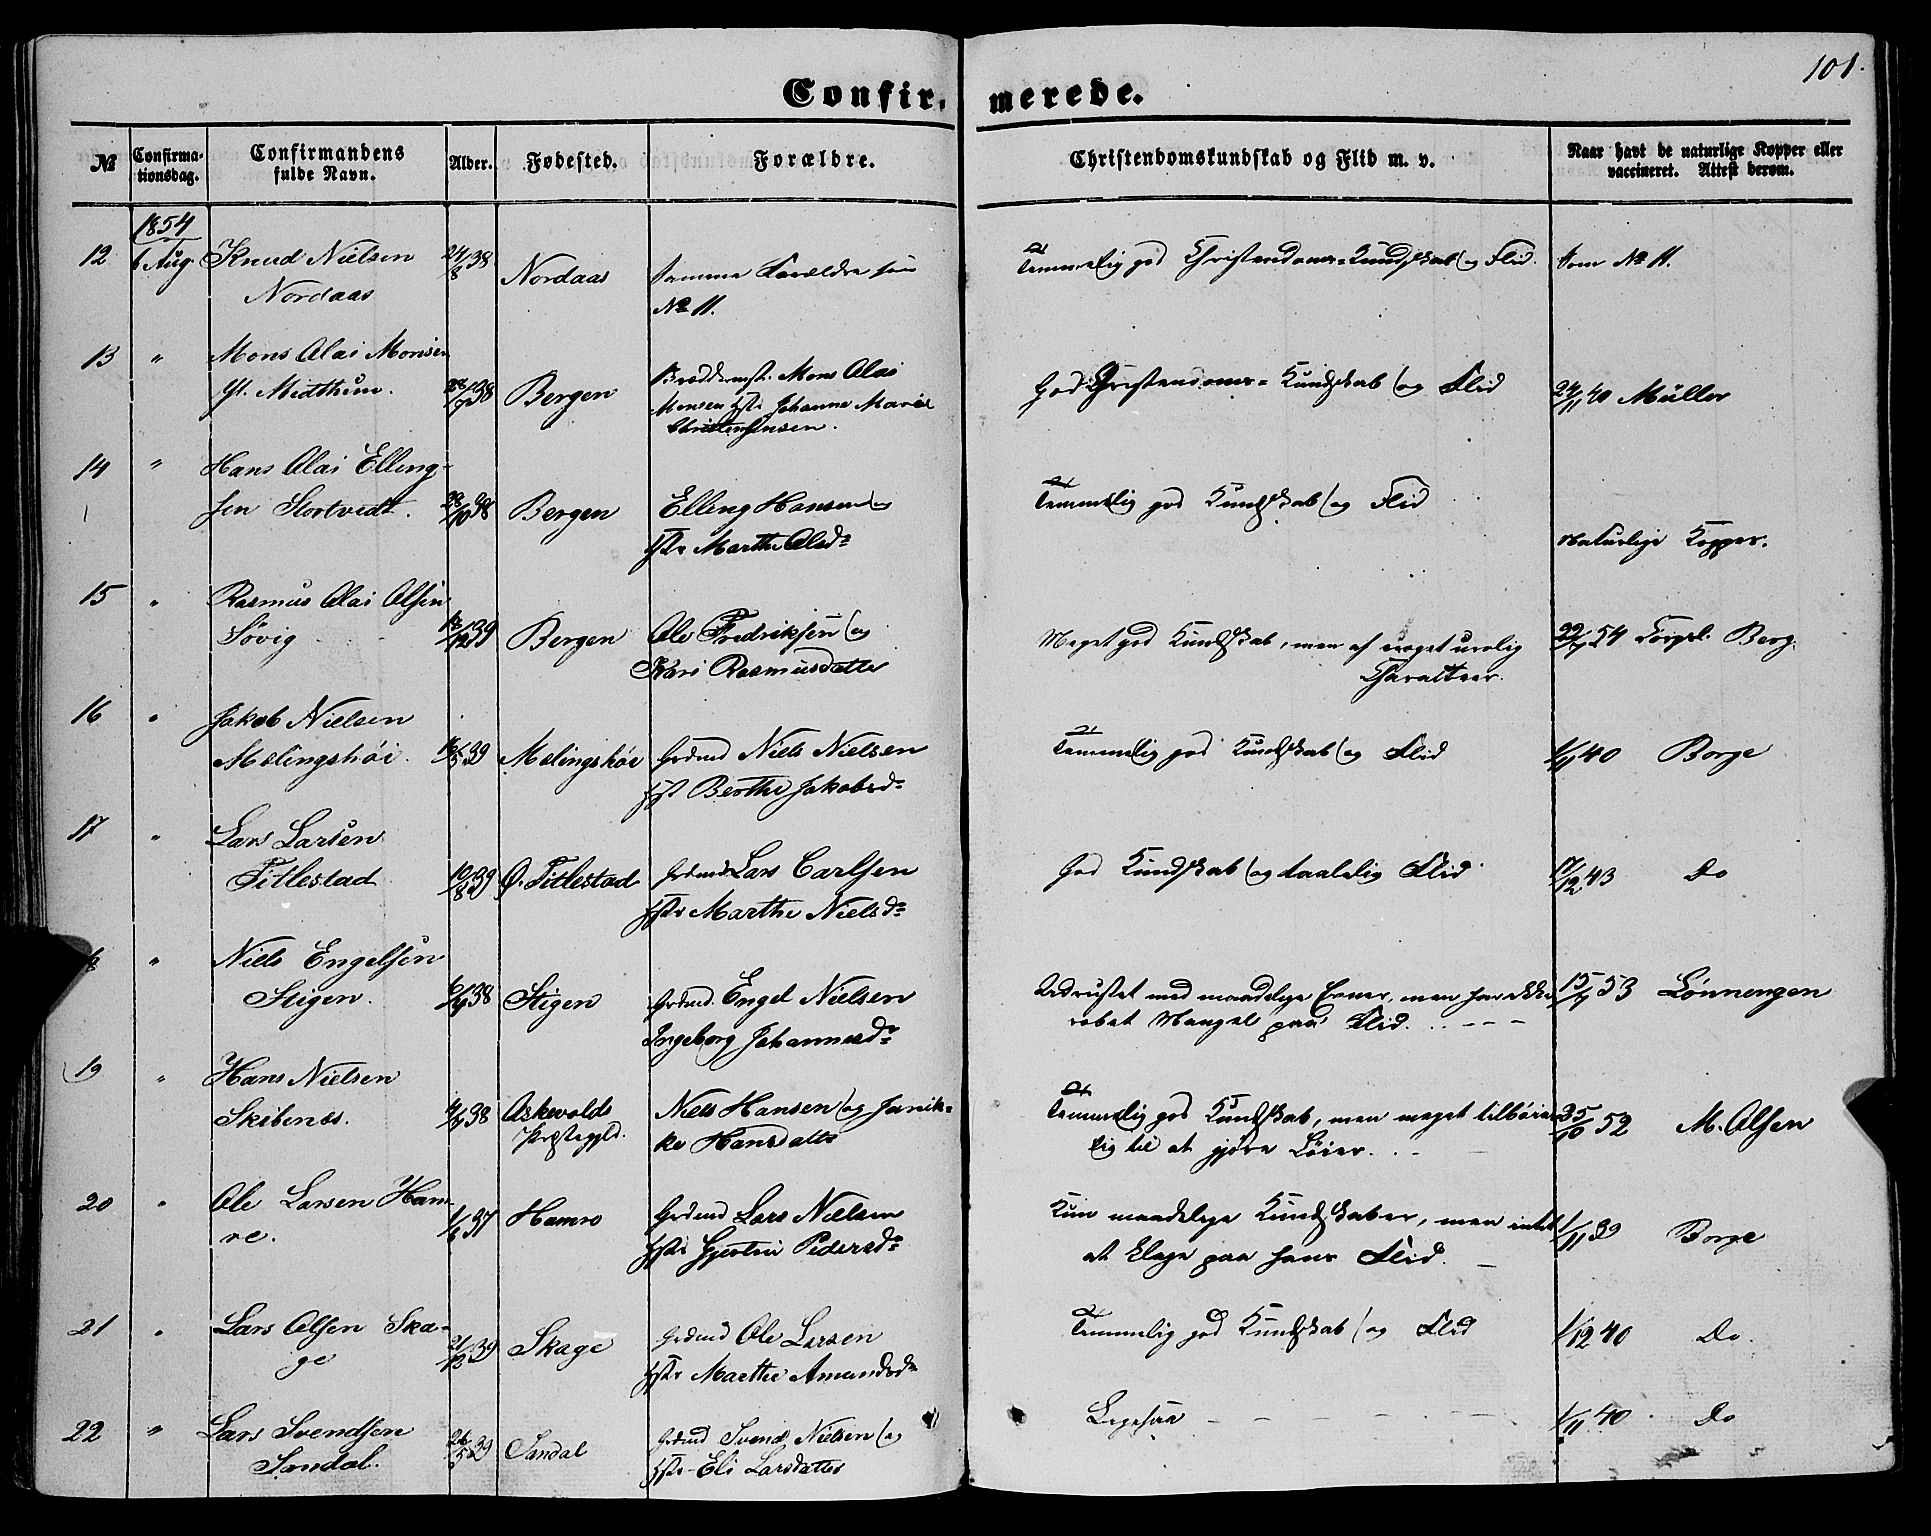 101.
Confir- merede.
№ Confirma-tionsdag. Confirmandens fulde Navn. Alder. Fødested. Forældre. Christendomskundskab og Flid m. v. Naar havt de naturlige Kopper eller vaccineret. Attest derom.
1854
12 6 Aug. Knud Nielsen 24/8 38 Nordaas Samme Forældre som Temmelig god Christendoms-Kundskab og Flid. Som № 11.
Nordaas № 11.
13 " Mons Olai Monsen
Yt. Midthun. 38 Bergen Mons Olai God Christendoms-Kundskab og Flid 24/11 40 Müller
Monsen Hstr Johanne Marie
Christensen.
14 " Hans Olai Elling-
sen Stortvedt. 28/10 38 Bergen Elling Hansen og Temmelig god Kundskab og Flid
Hstr Marthe Olsd. Naturlige Kopper.
15 " Rasmus Olai Olsen
Søvig 39 Bergen Ole Fredriksen og Meget god Kundskab, men af meget urolig 22/7 54 Torgel. Berg.
Kari Rasmusdatter Charakteer.
16 " Jakob Nielsen
Mælingshøi. 39 Mælingshøi Grdmd Niels Nielsen Temmelig god Kundskab og Flid 1/11 40 Borge
Hst Berthe Jakobsd.
17 " Lars Larsen
Titlestad 10/8 39 Ø. Titlestad Grdmd Lars Carlsen God Kundskab og taalelig Flid 17/12 43 Do
Hstr Marthe Nielsd.
18 " Niels Engelsen
Stigen. 6/9 38 Stigen Grdmd. Engel Nielsen Udrustet med maadelige Evner, men har ikke 15/7 53 Lønnengen
Ingeborg Johannesd. røbet Mangel paa Flid.
19 " Hans Nielsen
Skibenes. 38 Askevolds Niels Hansen og Janik- Temmelig god Kundskab, men meget tilbøie- 25/10 52 M. Olsen
Præstegjld. ke Hansdatter lig til at gjøre Løier.
20 " Ole Larsen Ham-
re. 37 Hamre Grdmd Lars Nielsen Kun maadelige Kundskaber, men intet 1/11 39 Borge
Hstr Gjertrui Pedersd. at klage paa hans Flid.
21 " Lars Olsen Ska-
ge 21/12 39 Skage Grdmd Ole Larsen Temmelig god Kundskab og Flid 1/12 40 Do.
Hstr Marthe Amundsd.
22 " Lars Svendsen
Sandal. 26/5 39 Sandal Grdmd Svend Nielsen og Ligesaa 1/11 40. Do
Hstr Eli Larsdatter